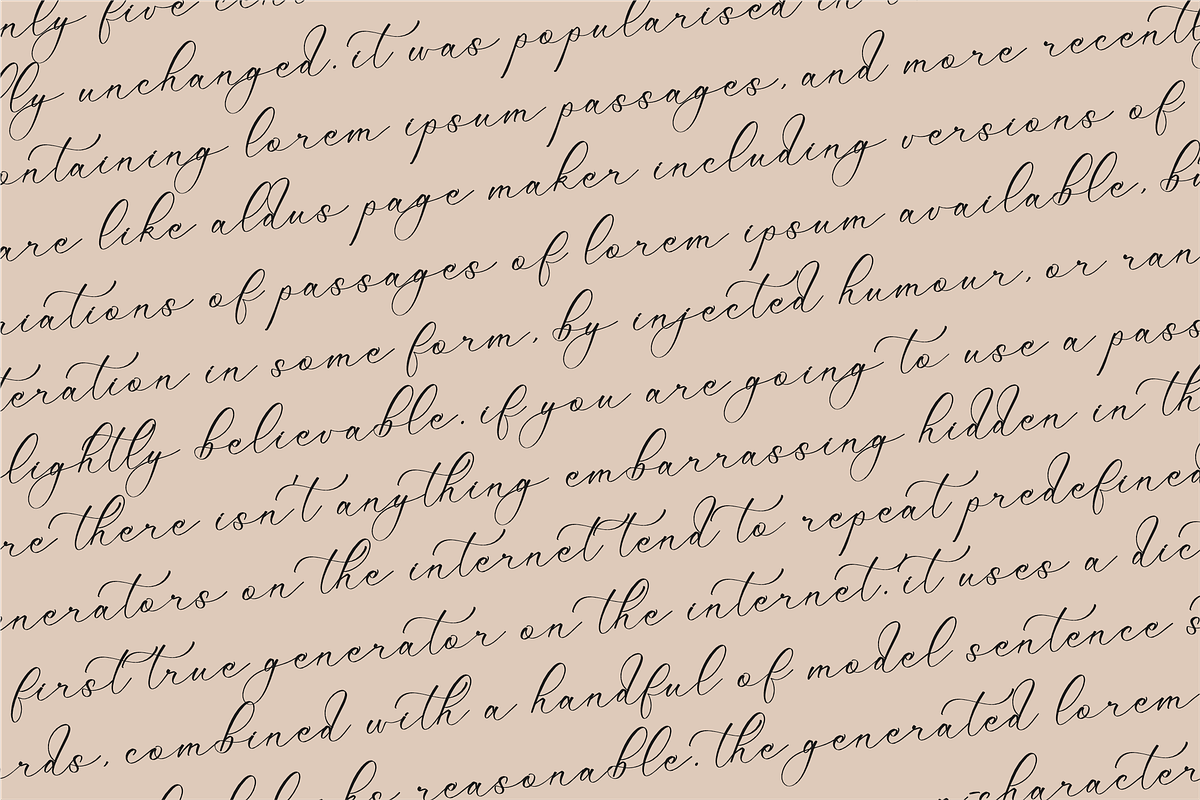 nly five cen
lly unchanged. it was popularised in
ontaining lorem ipsum passages, and more recently
are like aldus page maker including versions of
riations of passages of lorem ipsum available, bu
teration in some form, by injected humour, or ran
lightly believable. if you are going to use a pass
re there isn't anything embarrassing hidden in th
enerators on the internet tend to repeat predefined
first true generator on the internet. it uses a dic
rds, combined with a handful of model sentence s
looks reasonable. the generated lorem
character